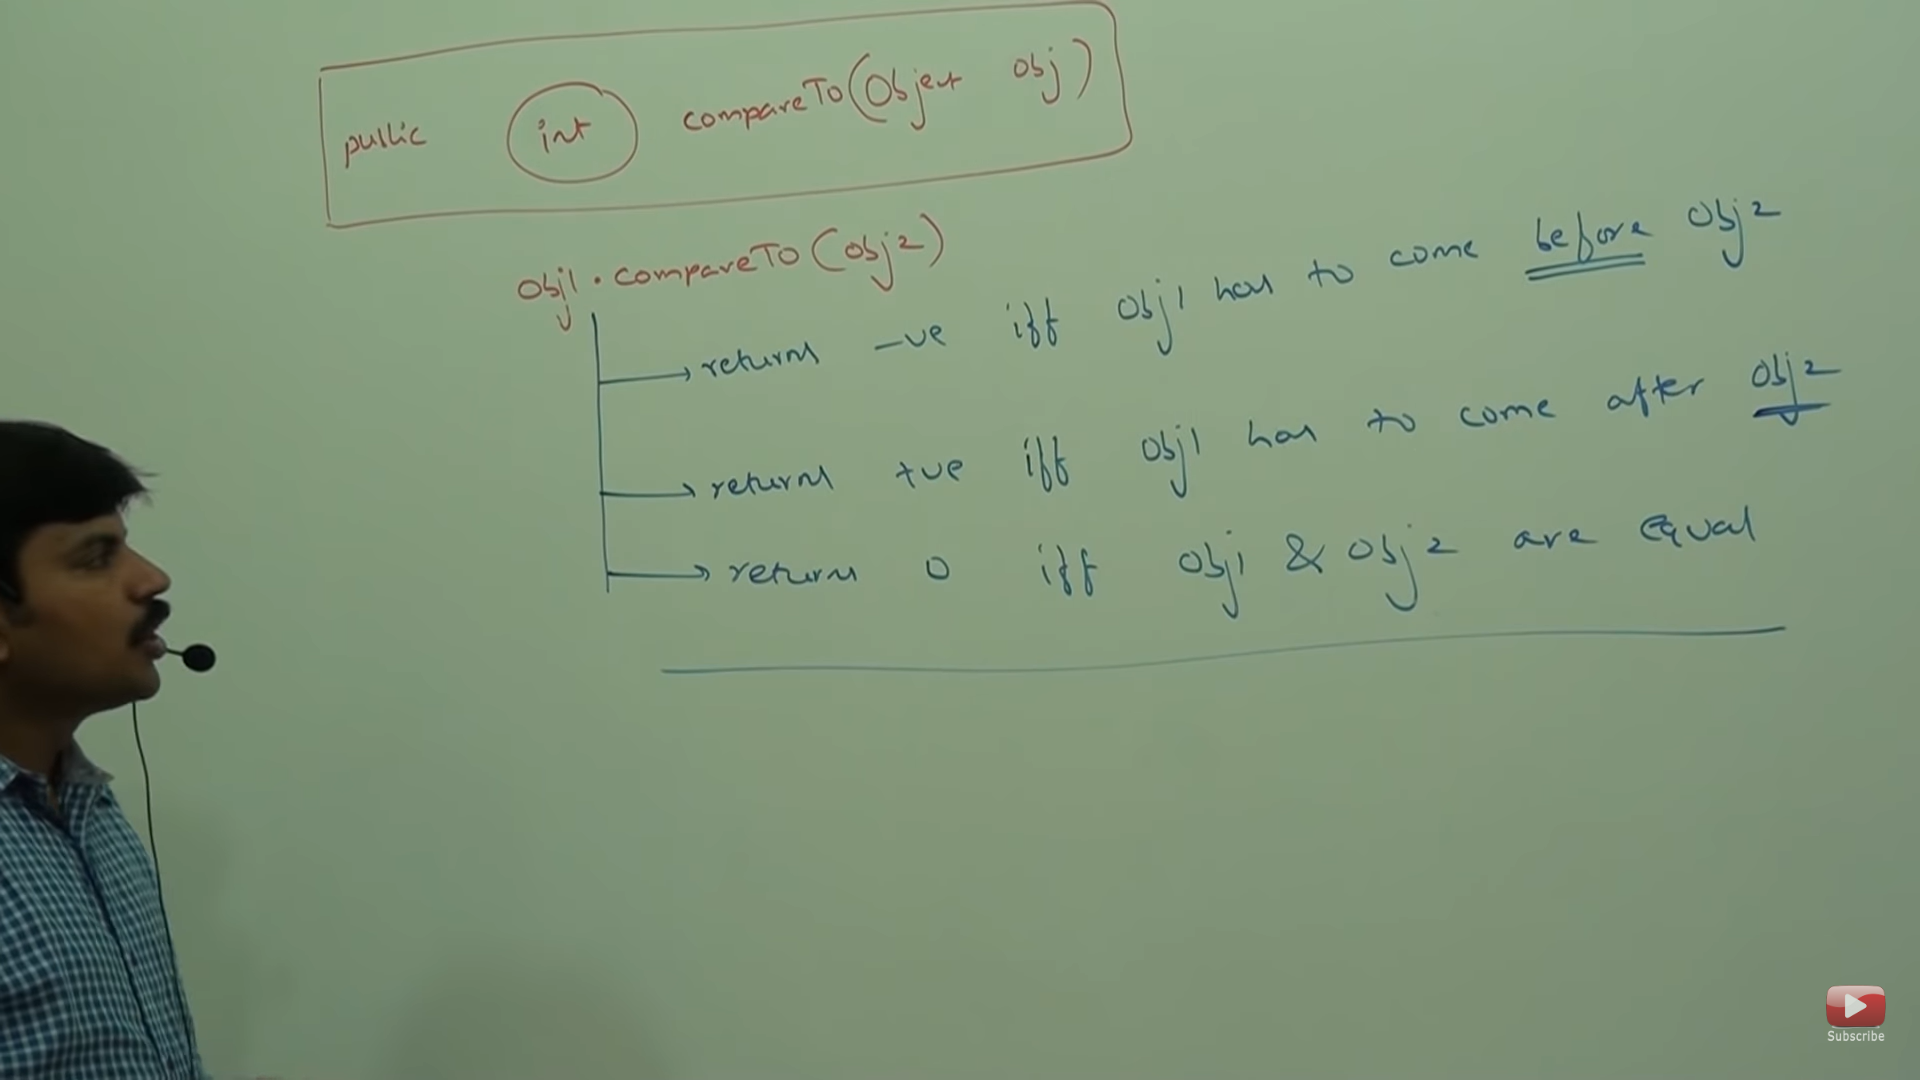 public int compareTo(Object obj)
obj1.compareTo(obj2)
returns -ve iff obj1 has to come before obj2
returns +ve iff obj1 has to come after obj2
returns 0 iff obj1 & obj2 are equal
Subscribe